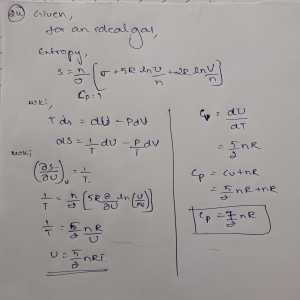 24 Given,
for an ideal gas,
Entropy,
S = n/2 [σ + 5R ln U/n + 2R ln V/n]
Cp = ?
WKT,
T ds = dU - PdV
dS = 1/T dU - P/T dV
WKT,
(∂S/∂U)v = 1/T
1/T = n/2 [5R ∂/∂U ln(U/n)]
1/T = 5/2 nR/U
U = 5/2 nRT
Cv = dU/dT
= 5/2 nR
Cp = Cv + nR
= 5/2 nR + nR
Cp = 7/2 nR